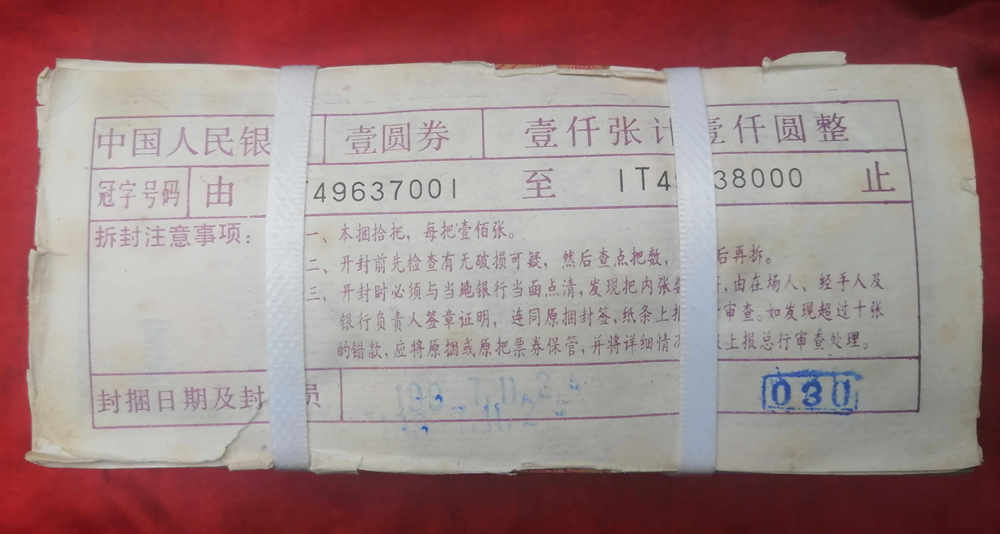 中国人民银 壹圆券 壹仟张计壹仟圆整
冠字号码 由 49637001 至 IT4 38000 止
拆封注意事项：
一、本捆拾把，每把壹佰张。
二、开封前先检查有无破损可疑，然后查点把数， 后再拆。
三、开封时必须与当地银行当面点清，发现把内张 ，由在场人、经手人及
银行负责人签章证明，连同原捆封签，纸条上报 审查。如发现超过十张
的错款，应将原捆或原把票券保管，并将详细情况 上报总行审查处理。
封捆日期及封 员 030